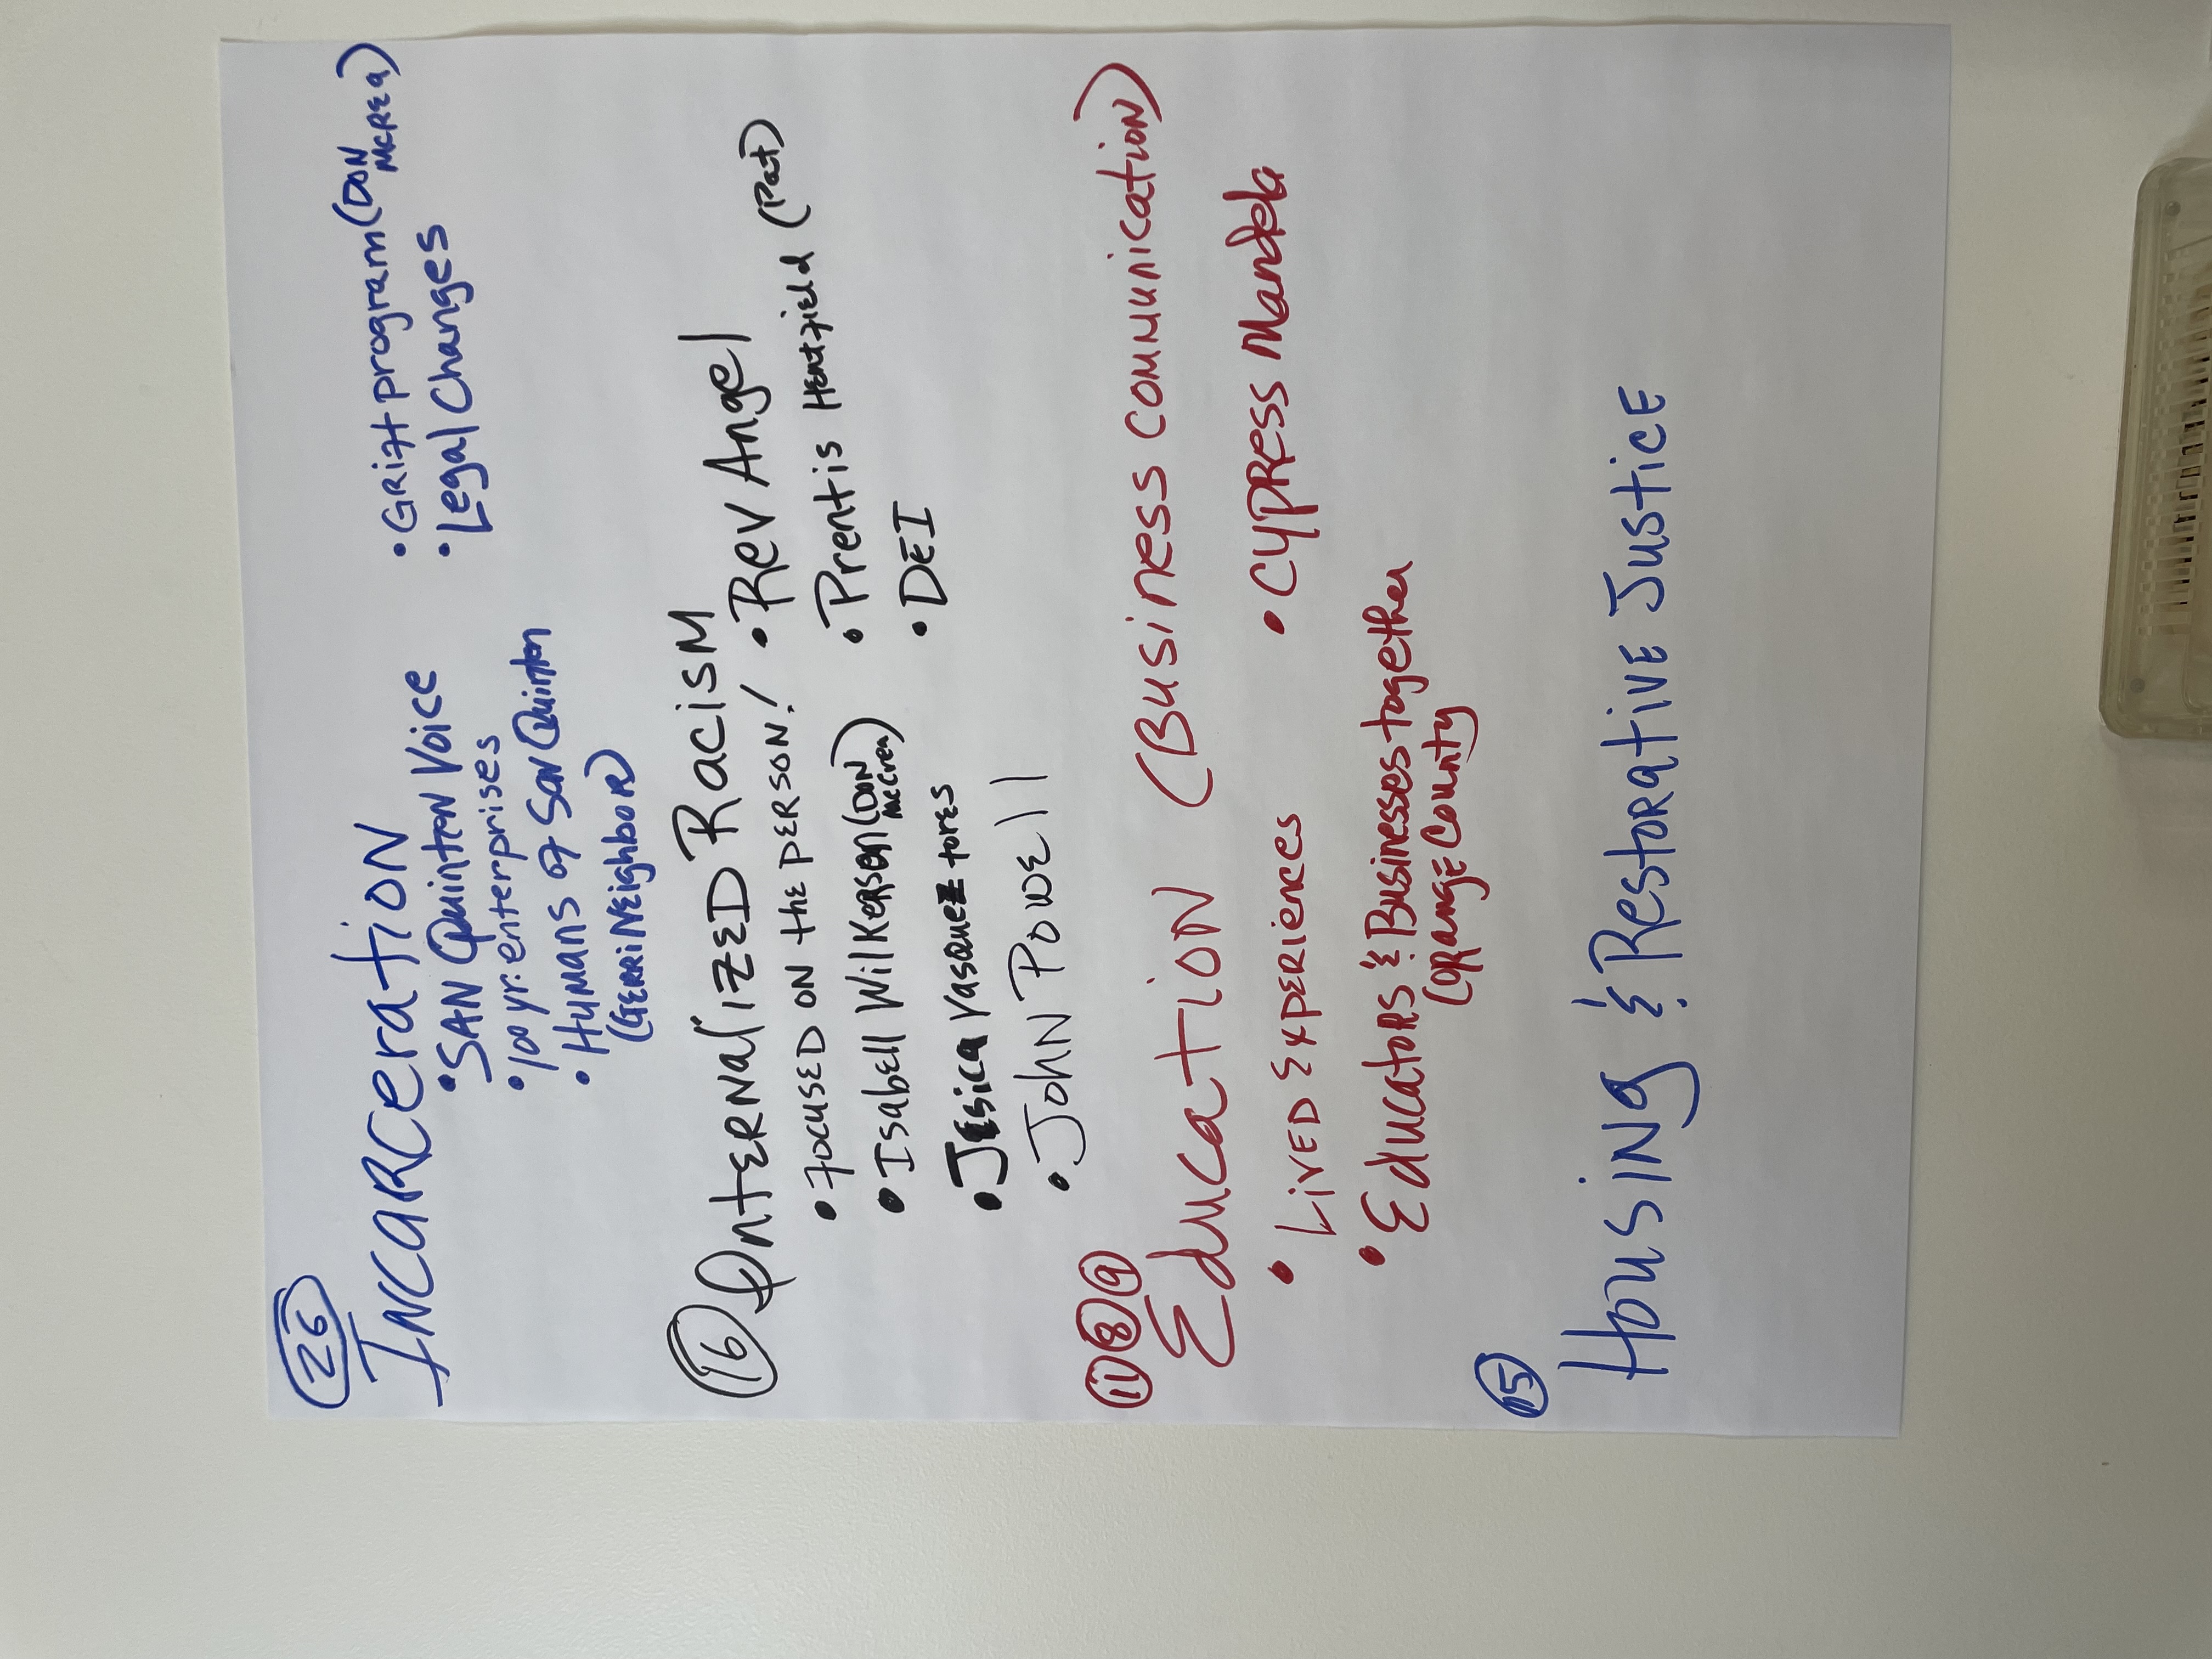 26
Incarceration
• San Quinton Voice
• 100 yr. enterprises
• Humans of San Quinton
(Gerri Neighbor)
• Grift program (Don McCrea)
• Legal Changes
16 Internalized Racism
• Focused on the person!
• Isabell Wilkerson (Don McCrea)
• Jesica Vasquez tores
• John Powell
• Rev Angel
• Prentis Hemfield (Pat)
• DEI
11 8 9
Education (Business communication)
• Lived Experiences
• Educators & Businesses together
(Orange County
• Cypress Mandela
15
Housing & Restorative Justice